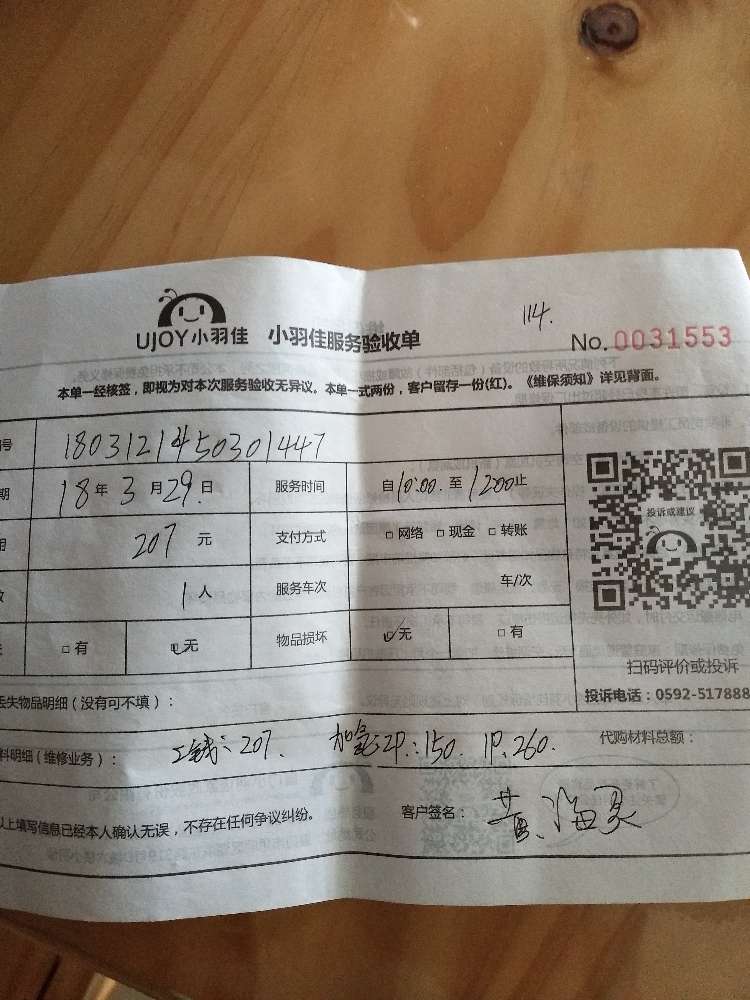 114.
UJOY小羽佳 小羽佳服务验收单 No. 0031553
本单一经核签，即视为对本次服务验收无异议。本单一式两份，客户留存一份(红)。《维保须知》详见背面。
号 1803121450301447
期 18年3月29日 服务时间 自10:00.至1200止
用 207元 支付方式 □网络 □现金 □转账
数 1人 服务车次 车/次
□有 ☑无 物品损坏 ☑无 □有
投诉或建议
扫码评价或投诉
丢失物品明细（没有可不填）： 投诉电话：0592-517888
料明细（维修业务）： 工钱：207. 加氟2P.:150. 1P.260. 代购材料总额：
以上填写信息已经本人确认无误，不存在任何争议纠纷。 客户签名：黄海灵